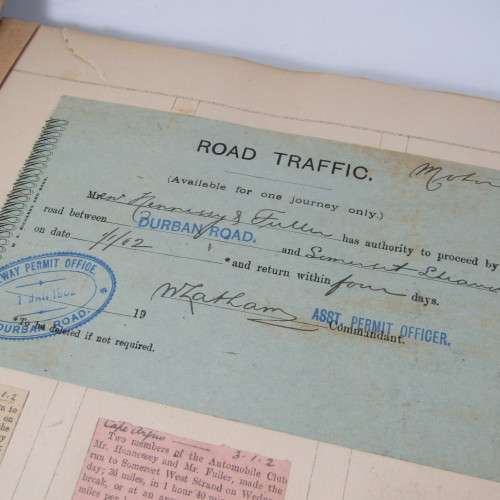 ROAD TRAFFIC.
(Available for one journey only.)
Hennessy & Fuller has authority to proceed by
road between DURBAN ROAD. and Somerset Strand
on date 1/1/02 *and return within four days.
WAY PERMIT OFFICE.
1 JAN 1902
DURBAN ROAD.
19 W Latham ASST. PERMIT OFFICER.
Commandant.
*To be deleted if not required.
1-2
n to
on
of
Cape Argus 3-1-2
Two members of the Automobile Club
Mr. Hennessey and Mr. Fuller, made the
run to Somerset West Strand on Wedn
day; 26 miles, in 1 hour 40 m
break, or at an
miles per